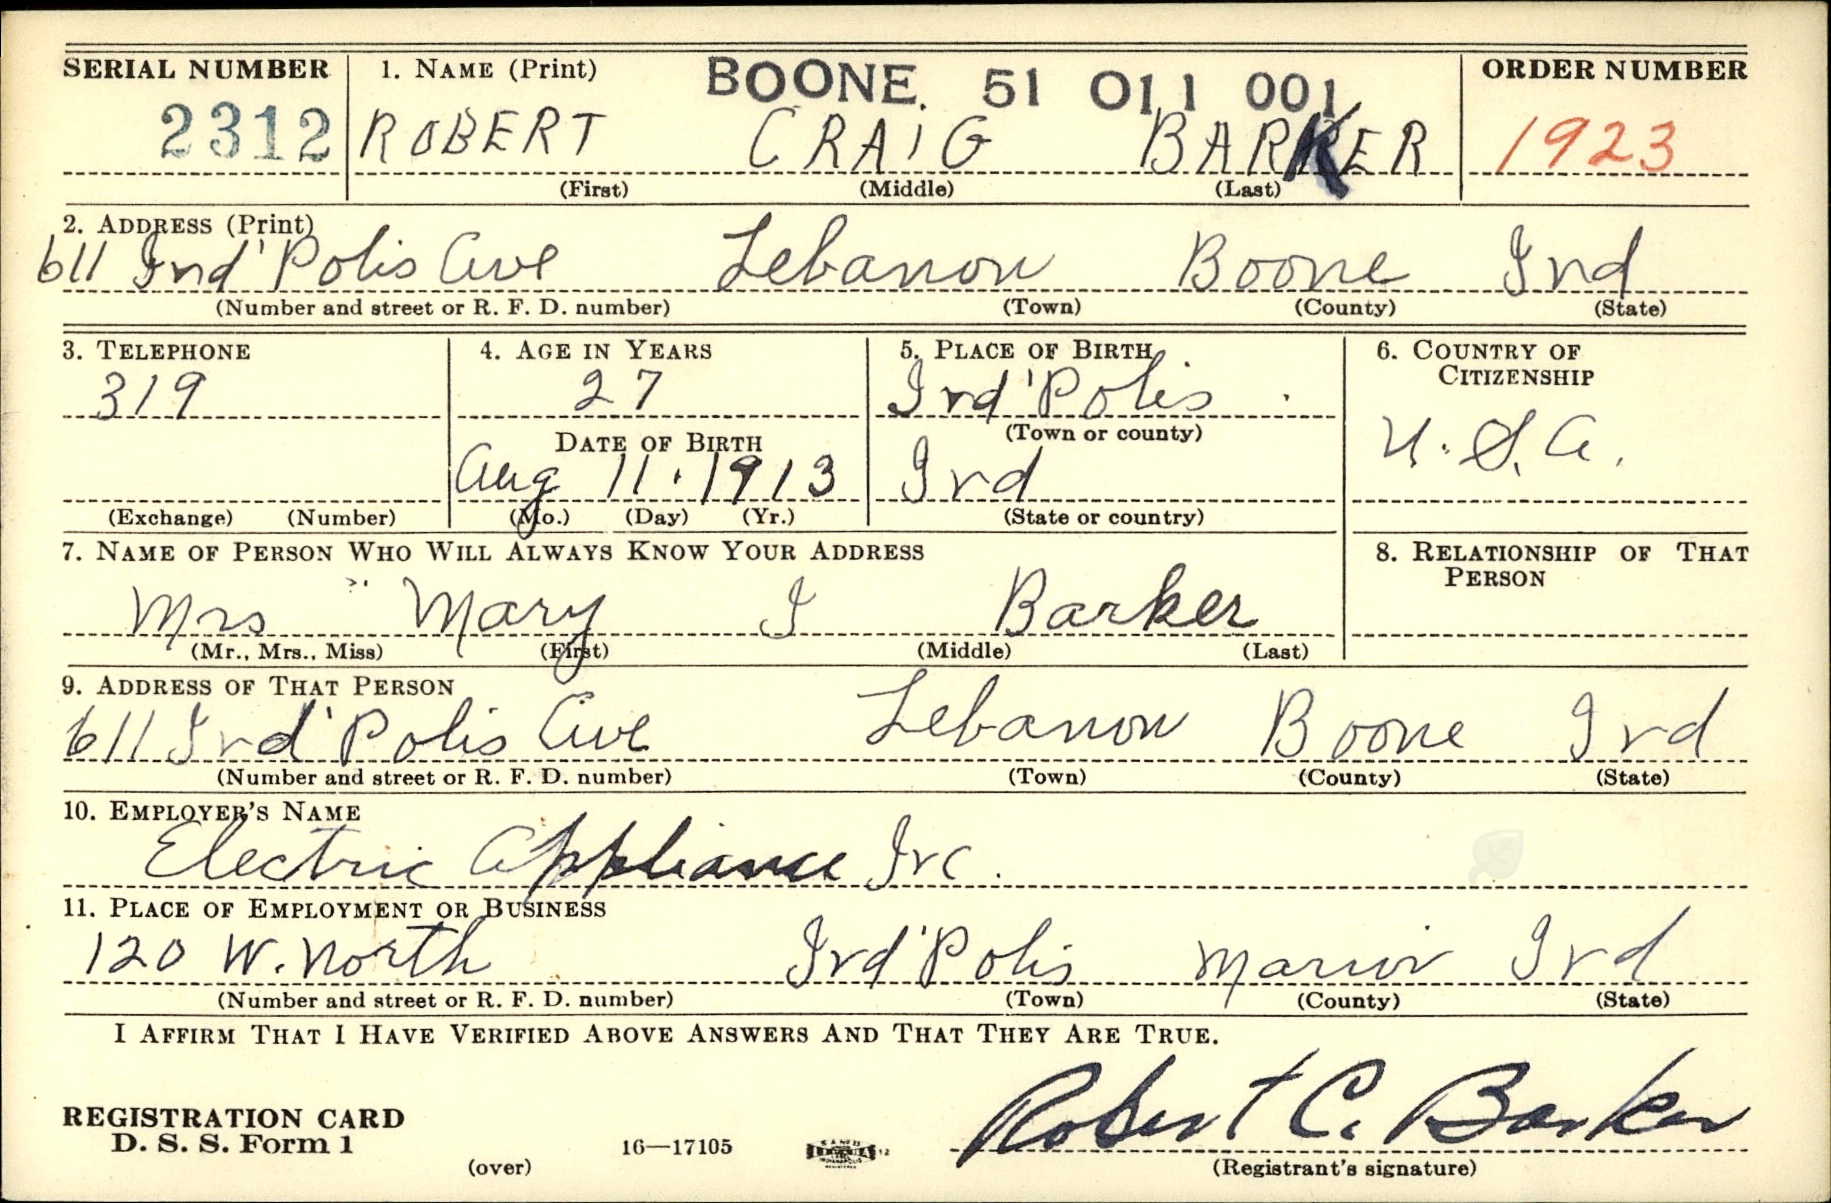 SERIAL NUMBER 1. NAME (Print) BOONE. 51 011 001 ORDER NUMBER
2312 ROBERT CRAIG BARKER 1923
(First) (Middle) (Last)
2. ADDRESS (Print)
611 Ind'Polis Ave Lebanon Boone Ind
(Number and street or R. F. D. number) (Town) (County) (State)
3. TELEPHONE 4. AGE IN YEARS 5. PLACE OF BIRTH 6. COUNTRY OF
CITIZENSHIP
319 27 Ind'Polis.
DATE OF BIRTH (Town or county) U.S.A.
Aug 11.1913 Ind
(Exchange) (Number) (Mo.) (Day) (Yr.) (State or country)
7. NAME OF PERSON WHO WILL ALWAYS KNOW YOUR ADDRESS 8. RELATIONSHIP OF THAT
PERSON
Mrs Mary I Barker
(Mr., Mrs., Miss) (First) (Middle) (Last)
9. ADDRESS OF THAT PERSON
611 Ind'Polis Ave Lebanon Boone Ind
(Number and street or R. F. D. number) (Town) (County) (State)
10. EMPLOYER'S NAME
Electric Appliance Inc.
11. PLACE OF EMPLOYMENT OR BUSINESS
120 W. North Ind'Polis Marion Ind
(Number and street or R. F. D. number) (Town) (County) (State)
I AFFIRM THAT I HAVE VERIFIED ABOVE ANSWERS AND THAT THEY ARE TRUE.
Robert C. Barker
REGISTRATION CARD
D. S. S. Form 1 16—17105
(over) (Registrant's signature)